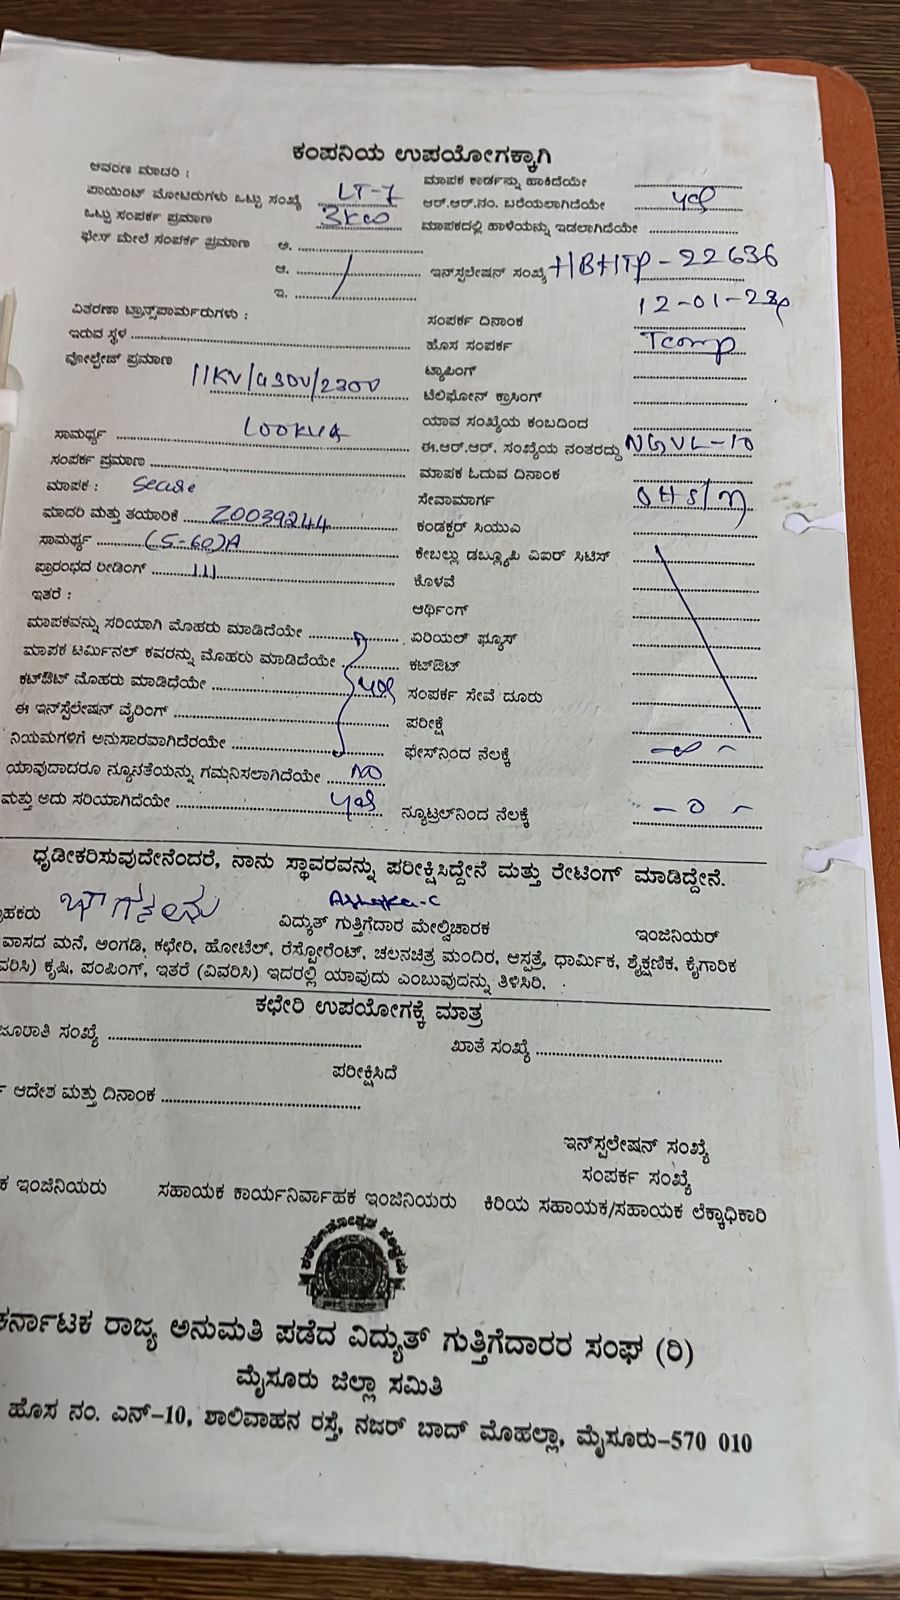 ಕಂಪನಿಯ ಉಪಯೋಗಕ್ಕಾಗಿ
ಆವರಣ ಮಾದರಿ : ಮಾಪಕ ಕಾರ್ಡನ್ನು ಹಾಕಿದೆಯೇ ....................
ಪಾಯಿಂಟ್ ಮೋಟರುಗಳು ಒಟ್ಟು ಸಂಖ್ಯೆ LT-7 ಆರ್.ಆರ್.ನಂ. ಬರೆಯಲಾಗಿದೆಯೇ yes
ಒಟ್ಟು ಸಂಪರ್ಕ ಪ್ರಮಾಣ 3kw ಮಾಪಕದಲ್ಲಿ ಹಾಳೆಯನ್ನು ಇಡಲಾಗಿದೆಯೇ ....................
ಫೇಸ್ ಮೇಲೆ ಸಂಪರ್ಕ ಪ್ರಮಾಣ ಅ. ....................
ಆ. .................... ಇನ್‌ಸ್ಪಲೇಷನ್ ಸಂಖ್ಯೆ HBHTP-22636
ಇ. ....................
ವಿತರಣಾ ಟ್ರಾನ್ಸ್‌ಪಾರ್ಮರುಗಳು : ಸಂಪರ್ಕ ದಿನಾಂಕ 12-01-23
ಇರುವ ಸ್ಥಳ .................... ಹೊಸ ಸಂಪರ್ಕ Temp
ವೋಲ್ಟೇಜ್ ಪ್ರಮಾಣ ಟ್ಯಾಪಿಂಗ್ ....................
11KV/430V/230V ಟೆಲಿಫೋನ್ ಕ್ರಾಸಿಂಗ್ ....................
ಯಾವ ಸಂಖ್ಯೆಯ ಕಂಬದಿಂದ ....................
ಸಾಮರ್ಥ್ಯ 100KVA ಈ.ಆರ್.ಆರ್. ಸಂಖ್ಯೆಯ ನಂತರದ್ದು NGVL-10
ಸಂಪರ್ಕ ಪ್ರಮಾಣ .................... ಮಾಪಕ ಓದುವ ದಿನಾಂಕ ....................
ಮಾಪಕ : Secure ಸೇವಾಮಾರ್ಗ OHS/M
ಮಾದರಿ ಮತ್ತು ತಯಾರಿಕೆ Z0039244 ಕಂಡಕ್ಟರ್ ಸಿಯುಎ ....................
ಸಾಮರ್ಥ್ಯ (5-60)A ಕೇಬಲ್ಲು ಡಬ್ಲ್ಯೂಪಿ ವಿಐರ್ ಸಿಟಿಸ್ ....................
ಪ್ರಾರಂಭದ ರೀಡಿಂಗ್ 111 ಕೊಳವೆ ....................
ಇತರೆ : ಆರ್ಥಿಂಗ್ ....................
ಮಾಪಕವನ್ನು ಸರಿಯಾಗಿ ಮೊಹರು ಮಾಡಿದೆಯೇ .................... ಏರಿಯಲ್ ಫ್ಯೂಸ್ ....................
ಮಾಪಕ ಟರ್ಮಿನಲ್ ಕವರನ್ನು ಮೊಹರು ಮಾಡಿದೆಯೇ .................... ಕಟ್‌ಔಟ್ ....................
ಕಟ್‌ಔಟ್ ಮೊಹರು ಮಾಡಿದೆಯೇ yes ಸಂಪರ್ಕ ಸೇವೆ ದೂರು ....................
ಈ ಇನ್‌ಸ್ಪಲೇಷನ್ ವೈರಿಂಗ್ .................... ಪರೀಕ್ಷೆ ....................
ನಿಯಮಗಳಿಗೆ ಅನುಸಾರವಾಗಿದೆರಯೇ .................... ಫೇಸ್‌ನಿಂದ ನೆಲಕ್ಕೆ ....................
ಯಾವುದಾದರೂ ನ್ಯೂನತೆಯನ್ನು ಗಮನಿಸಲಾಗಿದೆಯೇ NO
ಮತ್ತು ಅದು ಸರಿಯಾಗಿದೆಯೇ yes ನ್ಯೂಟ್ರಲ್‌ನಿಂದ ನೆಲಕ್ಕೆ -0-
ಧೃಡೀಕರಿಸುವುದೇನೆಂದರೆ, ನಾನು ಸ್ಥಾವರವನ್ನು ಪರೀಕ್ಷಿಸಿದ್ದೇನೆ ಮತ್ತು ರೇಟಿಂಗ್ ಮಾಡಿದ್ದೇನೆ.
Ashoka-C
ಹಕರು ವಿದ್ಯುತ್ ಗುತ್ತಿಗೆದಾರ ಮೇಲ್ವಿಚಾರಕ ಇಂಜಿನಿಯರ್
ವಾಸದ ಮನೆ, ಅಂಗಡಿ, ಕಛೇರಿ, ಹೋಟೆಲ್, ರೆಸ್ಟೋರೆಂಟ್, ಚಲನಚಿತ್ರ ಮಂದಿರ, ಆಸ್ಪತ್ರೆ, ಧಾರ್ಮಿಕ, ಶೈಕ್ಷಣಿಕ, ಕೈಗಾರಿಕ
ವರಿಸಿ) ಕೃಷಿ, ಪಂಪಿಂಗ್, ಇತರೆ (ವಿವರಿಸಿ) ಇದರಲ್ಲಿ ಯಾವುದು ಎಂಬುವುದನ್ನು ತಿಳಿಸಿರಿ.
ಕಛೇರಿ ಉಪಯೋಗಕ್ಕೆ ಮಾತ್ರ
ಜೂರಾತಿ ಸಂಖ್ಯೆ .................... ಖಾತೆ ಸಂಖ್ಯೆ ....................
ಪರೀಕ್ಷಿಸಿದೆ
ಆದೇಶ ಮತ್ತು ದಿನಾಂಕ ....................
ಇನ್‌ಸ್ಪಲೇಷನ್ ಸಂಖ್ಯೆ
ಸಂಪರ್ಕ ಸಂಖ್ಯೆ
ಕ ಇಂಜಿನಿಯರು ಸಹಾಯಕ ಕಾರ್ಯನಿರ್ವಾಹಕ ಇಂಜಿನಿಯರು ಕಿರಿಯ ಸಹಾಯಕ/ಸಹಾಯಕ ಲೆಕ್ಕಾಧಿಕಾರಿ
ಕರ್ನಾಟಕ ರಾಜ್ಯ ಅನುಮತಿ ಪಡೆದ ವಿದ್ಯುತ್ ಗುತ್ತಿಗೆದಾರರ ಸಂಘ (ರಿ)
ಮೈಸೂರು ಜಿಲ್ಲಾ ಸಮಿತಿ
ಹೊಸ ನಂ. ಎನ್-10, ಶಾಲಿವಾಹನ ರಸ್ತೆ, ನಜರ್ ಬಾದ್ ಮೊಹಲ್ಲಾ, ಮೈಸೂರು-570 010